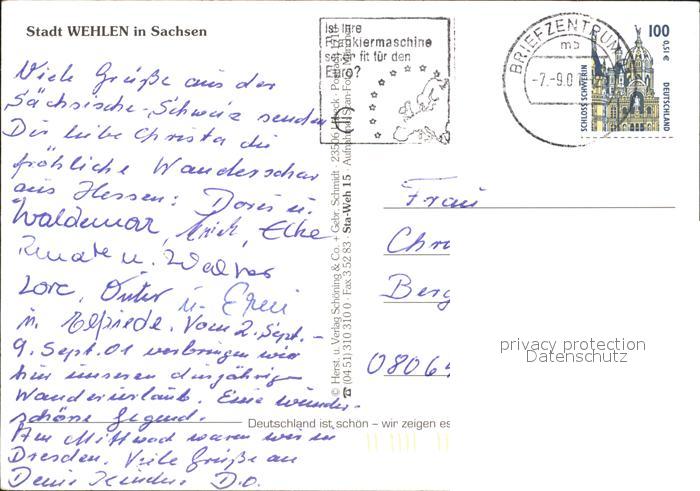 Stadt WEHLEN in Sachsen
Viele Grüße aus der
Sächsische-Schweiz senden
Dir liebe Christa die
fröhliche Wanderschar
aus Hessen: Doris u.
Waldemar, Erich, Elke
Renate u. Walter
Lore, Günter u. Erni
u. Elfriede. Vom 2. Sept. -
9. Sept. 01 verbringen wir
hier unseren diesjährigen
Wanderurlaub. Eine wunder-
schöne Gegend.
Am Mittwoch waren wir in
Dresden. Viele Grüße an
Deine Kinder D.O.
© Herst. u. Verlag Schöning & Co. + Gebr. Schmidt · 23506 Lübeck · Postfach
☎ (04 51) 310 310 0 · Fax 3 52 83 · Sta-Weh 15 ·
Ist Ihre
Frankiermaschine
schon fit für den
Euro?
BRIEFZENTRUM
mb
-7.-9.0
100
0,51 €
SCHLOSS SCHWERIN
DEUTSCHLAND
Frau
Chr
Berg
0806
privacy protection
Datenschutz
Deutschland ist schön – wir zeigen es